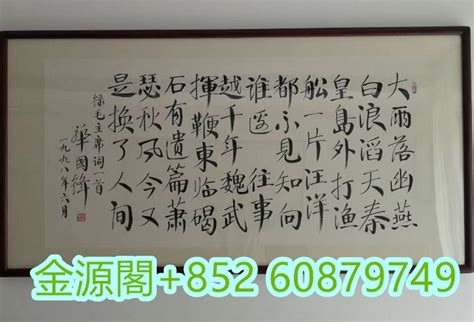 大雨落幽燕
白浪滔天秦
皇島外打漁
舩一片汪洋
都不見知向
誰邊 往事
越千年魏武
揮鞭東临碣
石有遺篇蕭
瑟秋风今又
是換了人间
錄毛主席词一首
華國鋒
一九九八年六月
金源閣+852 60879749